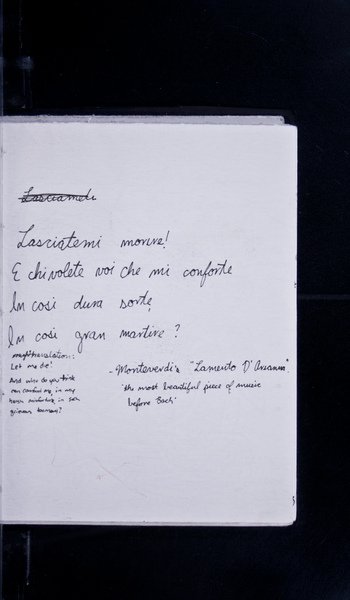 Lasciameti
Lasciatemi morire!
E chi volete voi che mi conforte
In cosi dura sorte,
In cosi gran martire?
translation:
Let me die!
And who do you think
can comfort me, in my
harsh misfortune, in such
torment?
- Monteverdi's "Lamento D'Arianna"
'the most beautiful piece of music
before Bach'